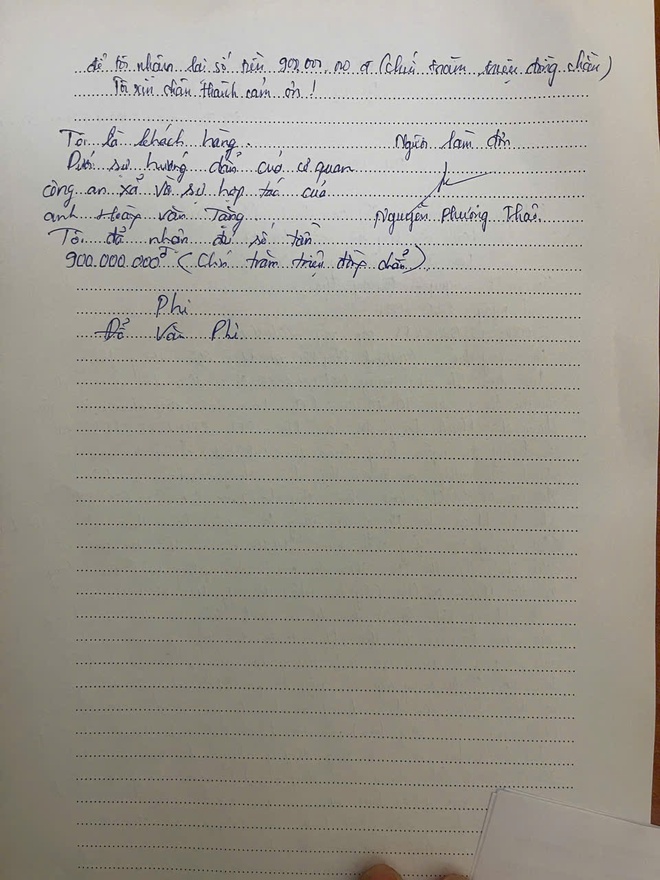 để tôi nhận lại số tiền 900.000.000 đ (chín trăm triệu đồng chẵn)
Tôi xin chân thành cảm ơn!
Tôi là khách hàng.
Người làm đơn
Dưới sự hướng dẫn của cơ quan
công an xã và sự hợp tác của
anh Hoàng Văn Tăng
Nguyễn Phương Thảo
Tôi đã nhận đủ số tiền
900.000.000đ (Chín trăm triệu đồng chẵn)
Phi
Đỗ Văn Phi